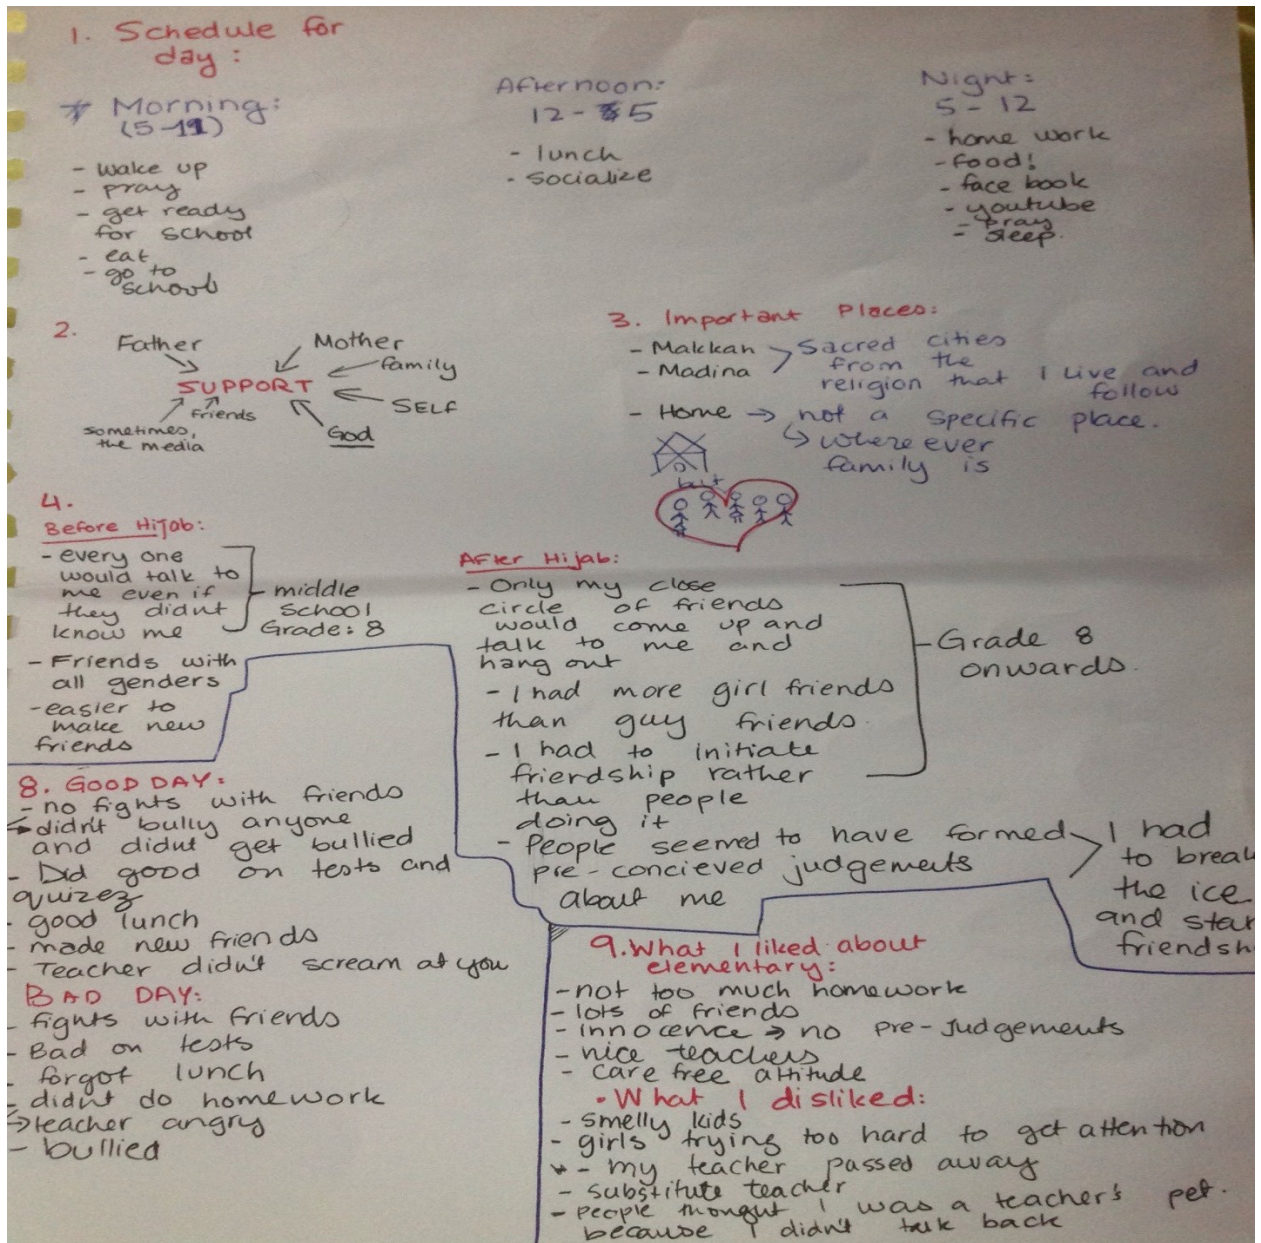 1. Schedule for
day :
* Morning:
(5-11)
- wake up
- pray
- get ready
for school
- eat
- go to
school
Afternoon:
12 - 5
- lunch
- socialize
Night:
5 - 12
- home work
- food!
- face book
- youtube
- pray
- sleep.
2.
Father
Mother
family
SUPPORT
SELF
friends
sometimes,
the media
God
3. Important Places:
- Makkah
- Madina
Sacred cities
from the
religion that I live and
follow
- Home → not a specific place.
↳ where ever
family is
but
4.
Before Hijab:
- every one
would talk to
me even if
they didnt
know me
middle
school
Grade: 8
- Friends with
all genders
- easier to
make new
friends
After Hijab:
- Only my close
circle of friends
would come up and
talk to me and
hang out
- I had more girl friends
than guy friends.
- I had to initiate
friendship rather
than people
doing it
- Grade 8
onwards.
- People seemed to have formed
pre-concieved judgements
about me
I had
to break
the ice
and star
friendsh
8. GOOD DAY:
- no fights with friends
→ didn't bully anyone
and didnt get bullied
- Did good on tests and
quizez
- good lunch
- made new friends
- Teacher didn't scream at you
BAD DAY:
- fights with friends
- Bad on tests
- forgot lunch
- didnt do homework
→ teacher angry
- bullied
9. What I liked about
elementary:
- not too much homework
- lots of friends
- innocence → no pre-judgements
- nice teachers
- care free attitude
• What I disliked:
- smelly kids
- girls trying too hard to get attention
* - my teacher passed away
- substitute teacher
- people thought I was a teacher's pet.
because I didn't talk back